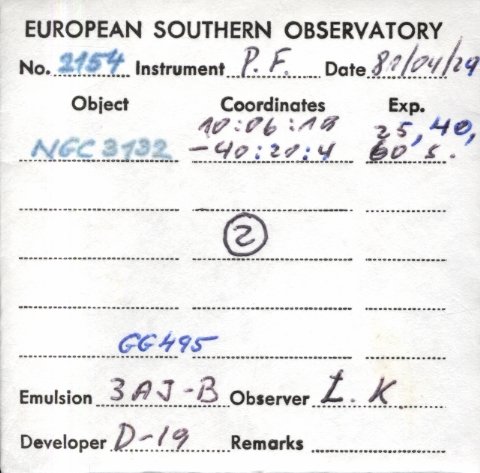 EUROPEAN SOUTHERN OBSERVATORY
No. 2154 Instrument P.F. Date 81/04/29
Object Coordinates Exp.
10:06:19 25, 40,
NGC 3132 -40:20:4 60 s.
2
GG495
Emulsion 3AJ-B Observer Ł. K.
Developer D-19 Remarks